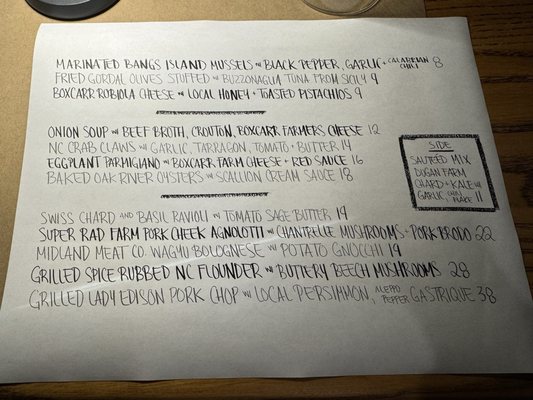 MARINATED BANGS ISLAND MUSSELS w/ BLACK PEPPER, GARLIC + CALABRIAN CHILI 8
FRIED GORDAL OLIVES STUFFED w/ BUZZONAGLIA TUNA FROM SICILY 9
BOXCARR ROBIOLA CHEESE w/ LOCAL HONEY + TOASTED PISTACHIOS 9
ONION SOUP w/ BEEF BROTH, CROUTON, BOXCARR FARMERS CHEESE 12
NC CRAB CLAWS w/ GARLIC, TARRAGON, TOMATO + BUTTER 14
EGGPLANT PARMIGIANO w/ BOXCARR FARM CHEESE + RED SAUCE 16
BAKED OAK RIVER OYSTERS w/ SCALLION CREAM SAUCE 18
SIDE
SAUTEED MIX
DUGAN FARM
CHARD + KALE w/
GARLIC, CHILI FLAKE 11
SWISS CHARD AND BASIL RAVIOLI w/ TOMATO SAGE BUTTER 19
SUPER RAD FARM PORK CHEEK AGNOLOTTI w/ CHANTRELLE MUSHROOMS + PORK BRODO 22
MIDLAND MEAT CO. WAGYU BOLOGNESE w/ POTATO GNOCCHI 19
GRILLED SPICE RUBBED NC FLOUNDER w/ BUTTERY BEECH MUSHROOMS 28
GRILLED LADY EDISON PORK CHOP w/ LOCAL PERSIMMON, ALEPPO PEPPER GASTRIQUE 38